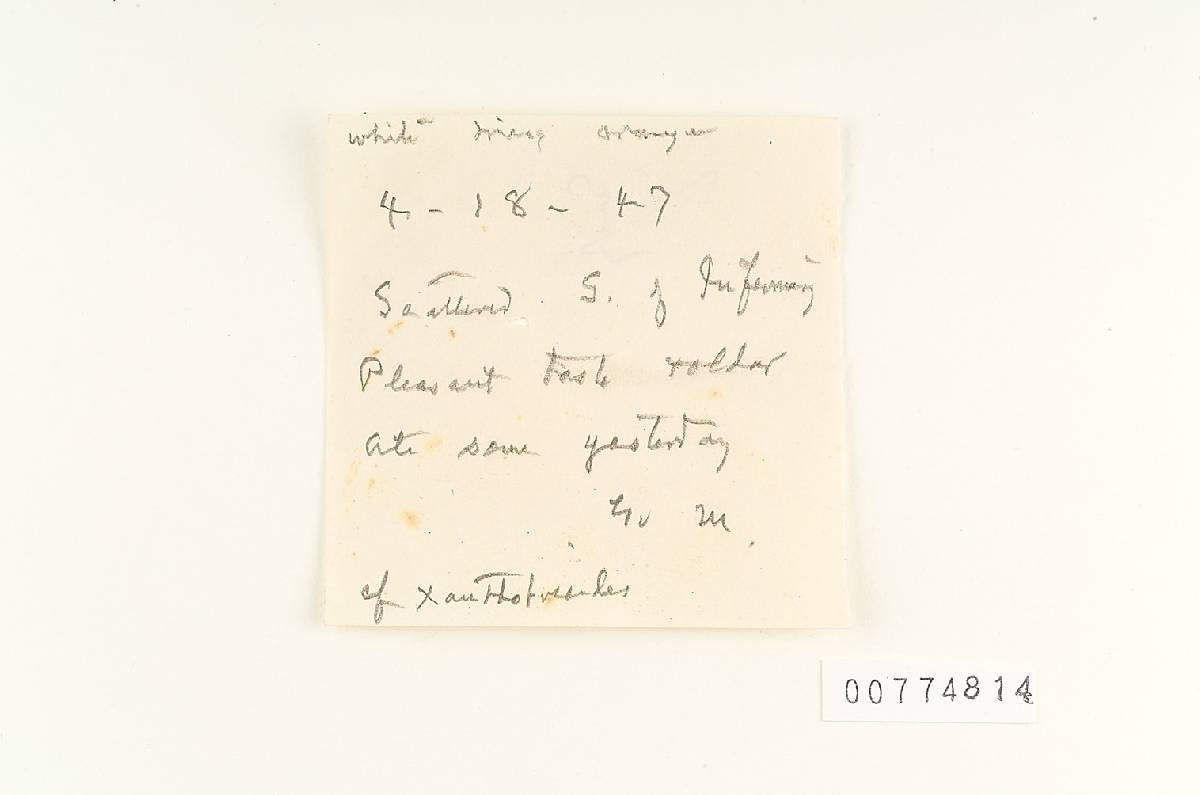 white orange
4-18-47
Scattered S. of Infirmary
Pleasant taste & odor
Ate some yesterday
M
cf
00774814